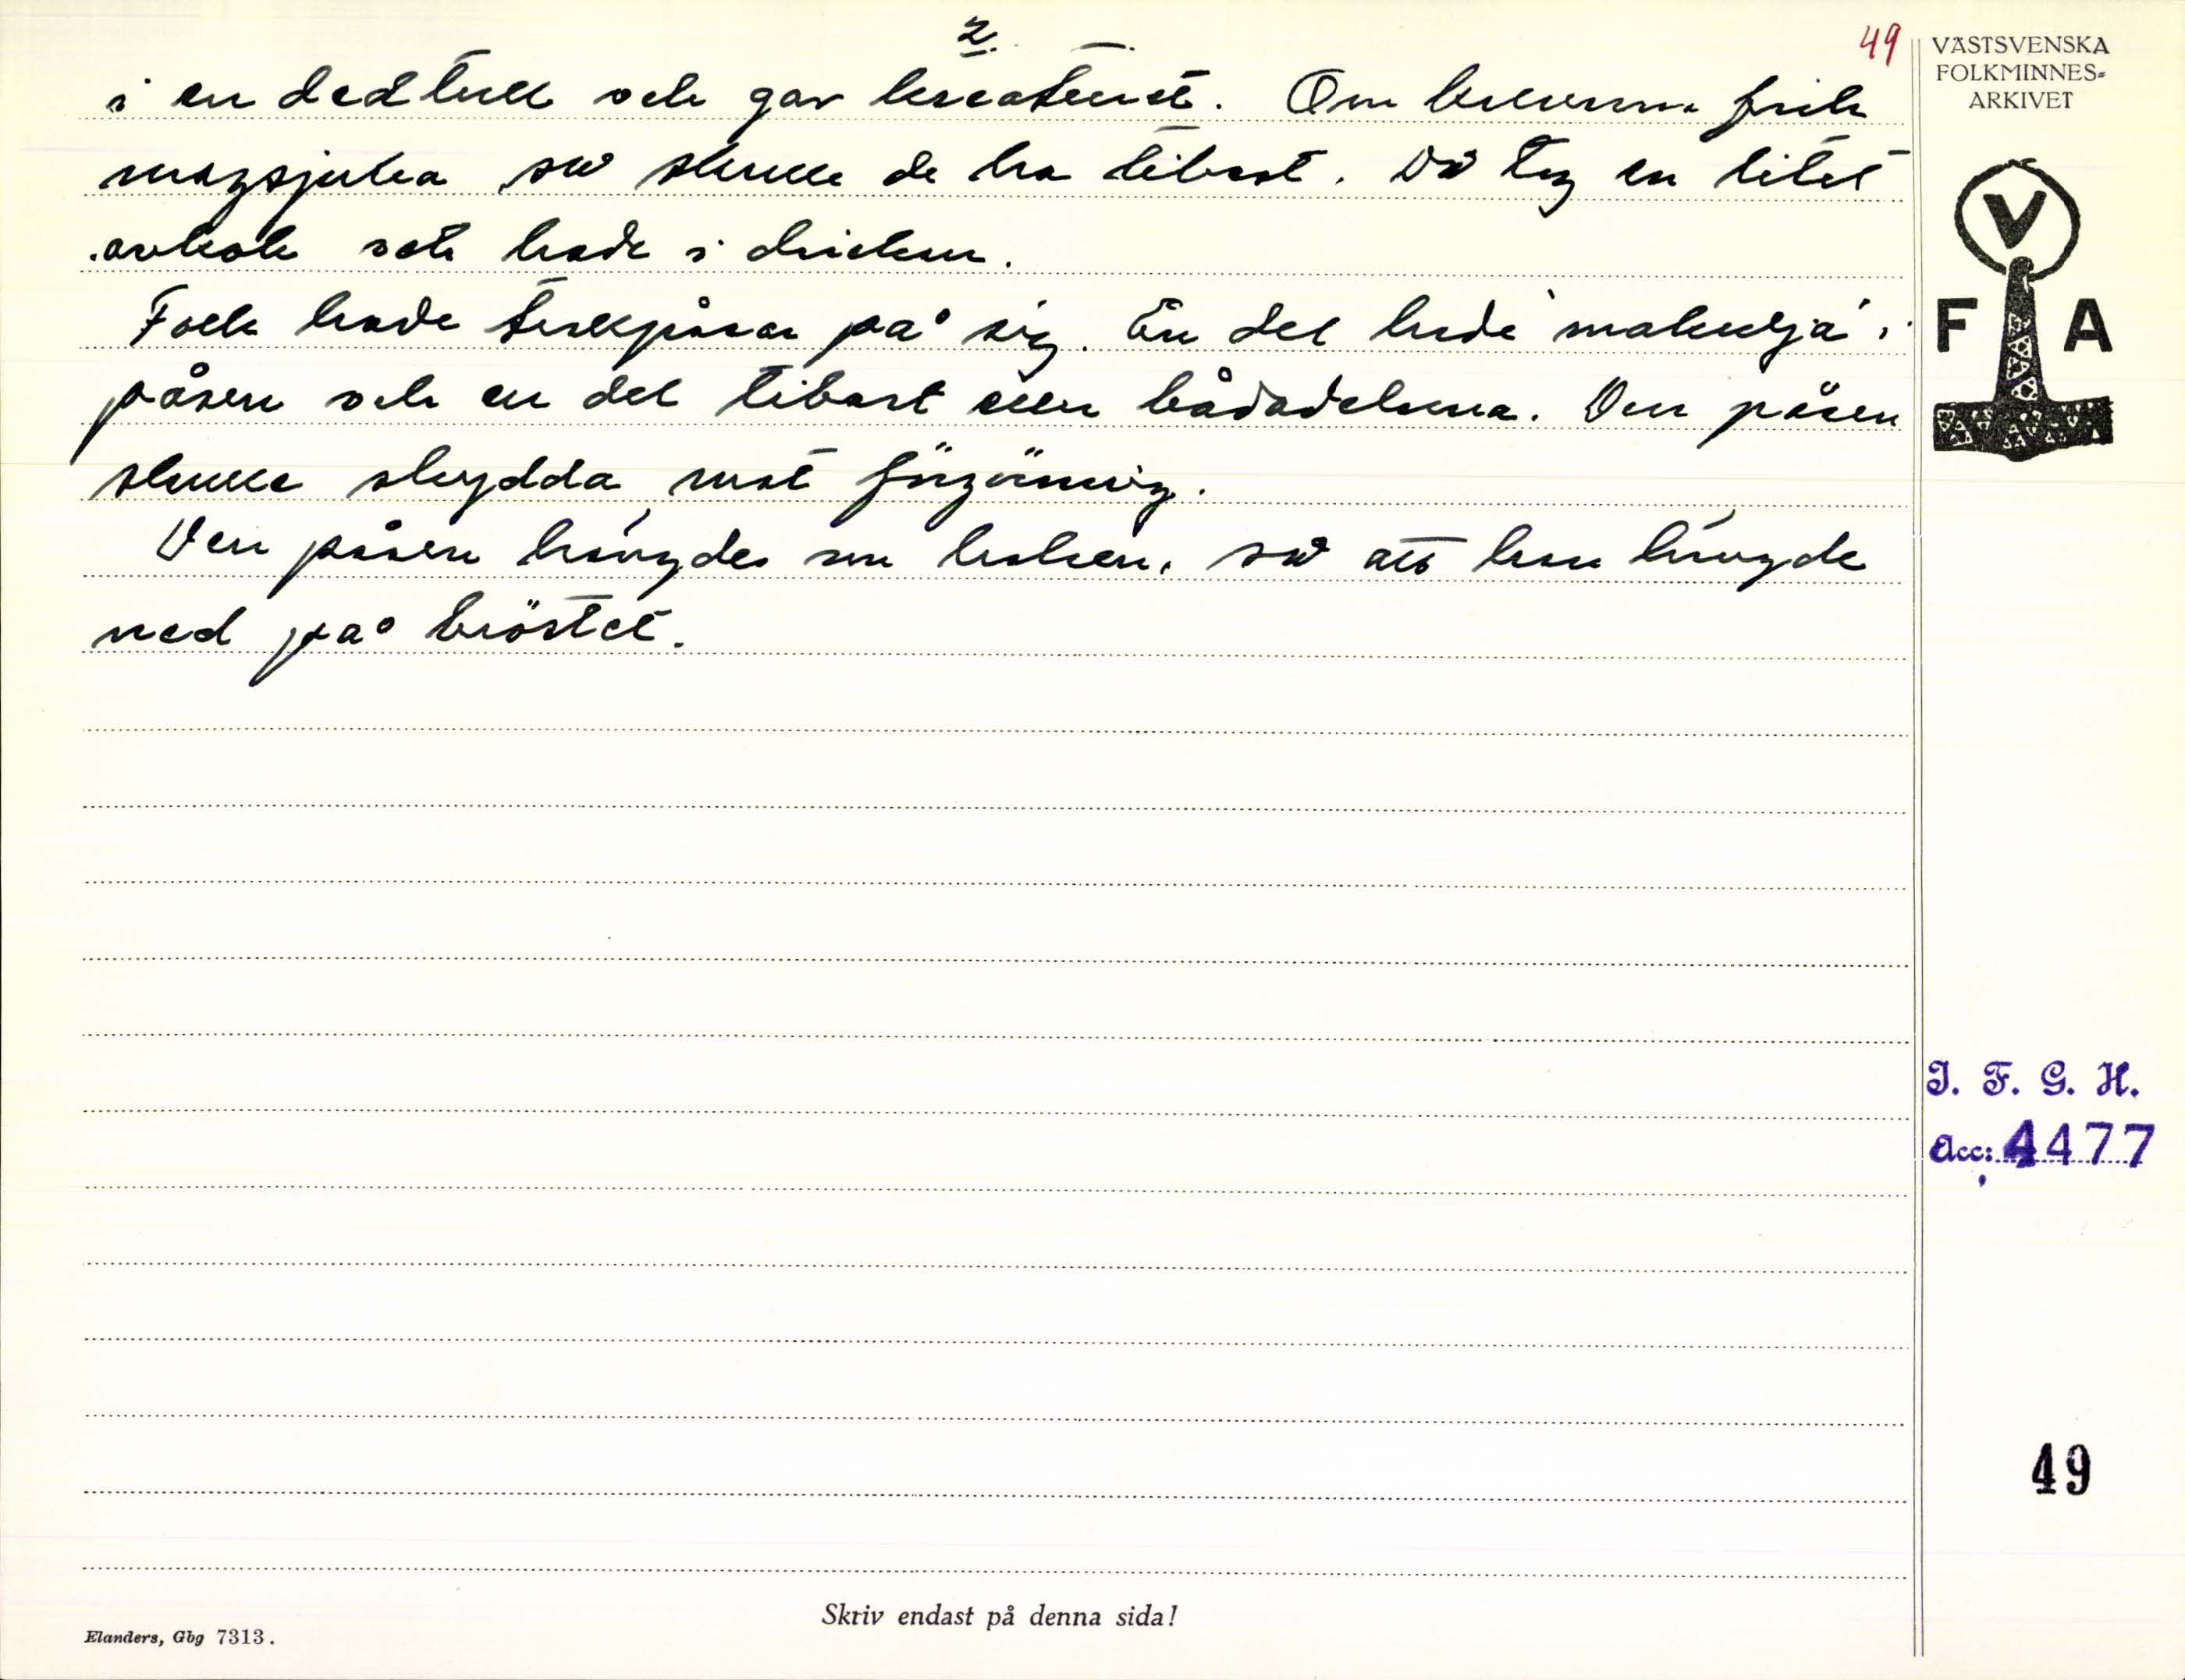 2.
49
i en dedtull och gav kreaturet. Om kreaturen fick
magsjuka så skulle de ha tibast. Då tog en litet
avkok och hade i dricken.
Folk hade tyskpåsar på sig. En del hade malurtja i
påsen och en del tibast eller bådadelarna. Den påsen
skulle skydda mot förgöring.
Den påsen hängdes om halsen, så att han hängde
ned på bröstet.
VÄSTSVENSKA
FOLKMINNES-
ARKIVET
V
F A
I. F. G. H.
Acc: 4477
49
Skriv endast på denna sida!
Elanders, Gbg 7313.